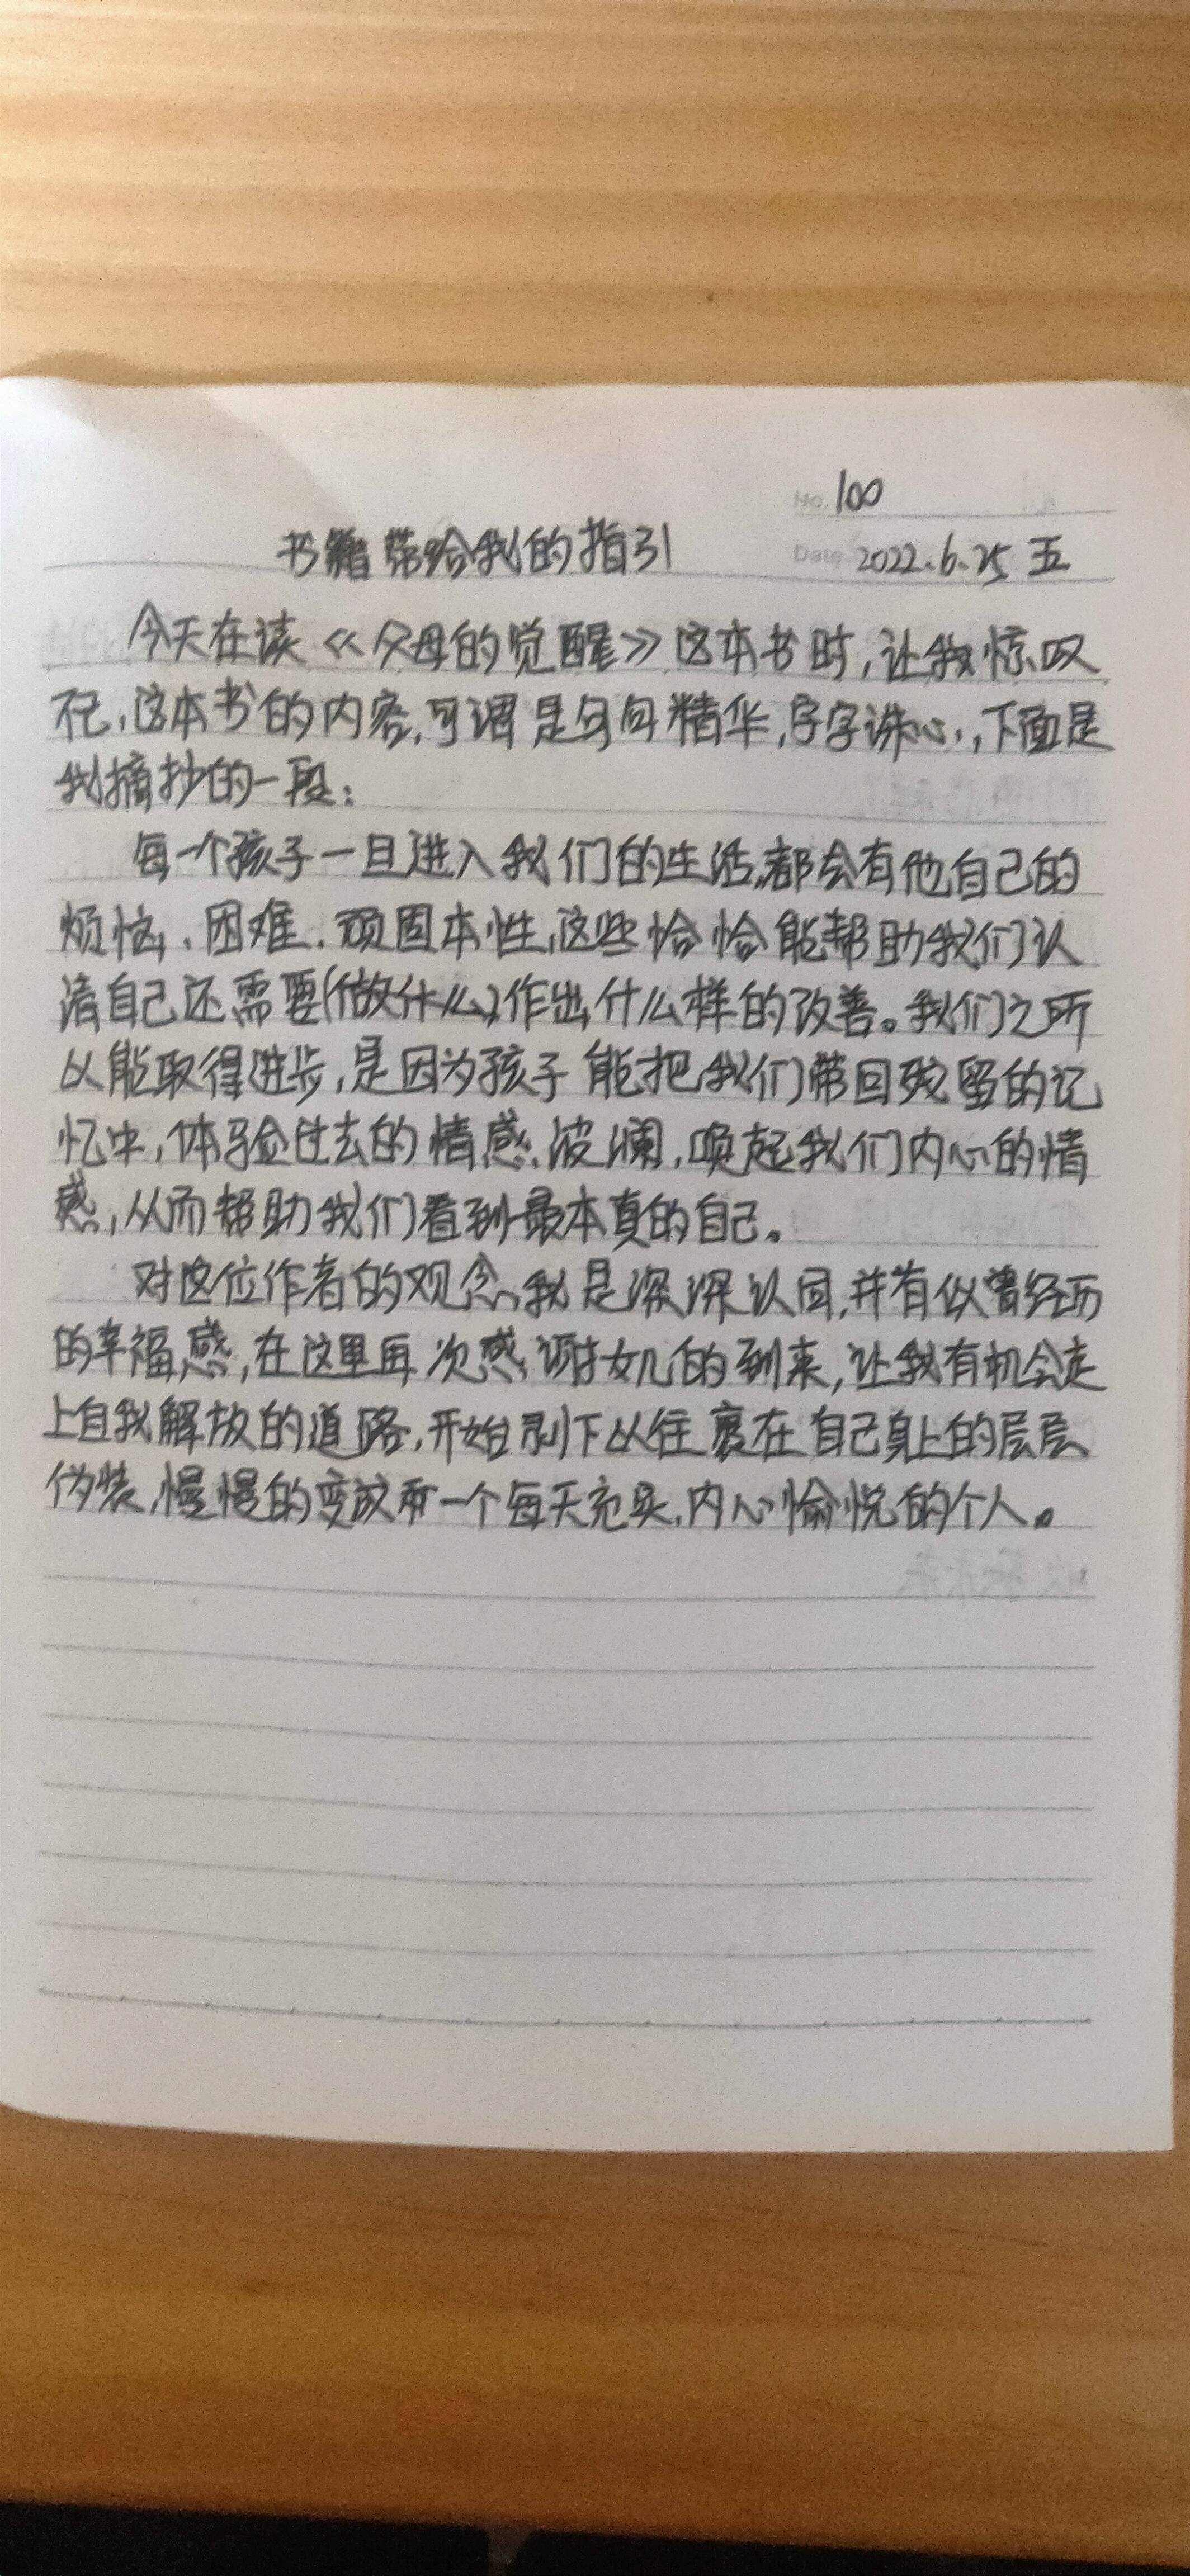 No. 100
书籍带给我的指引
Date 2022.6.25 五
今天在读《父母的觉醒》这本书时,让我惊叹
不已,这本书的内容,可谓是句句精华,字字诛心,下面是
我摘抄的一段:
每一个孩子一旦进入我们的生活,都会有他自己的
烦恼、困难、顽固本性,这些恰恰能帮助我们认
清自己还需要(做什么)作出什么样的改善。我们之所
以能取得进步,是因为孩子能把我们带回残留的记
忆中,体验过去的情感波澜,唤起我们内心的情
感,从而帮助我们看到最本真的自己。
对这位作者的观念,我是深深认同,并有似曾经历
的幸福感,在这里再次感谢女儿的到来,让我有机会走
上自我解放的道路,开始剥下以往裹在自己身上的层层
伪装,慢慢的变成一个每天充实,内心愉悦的个人。